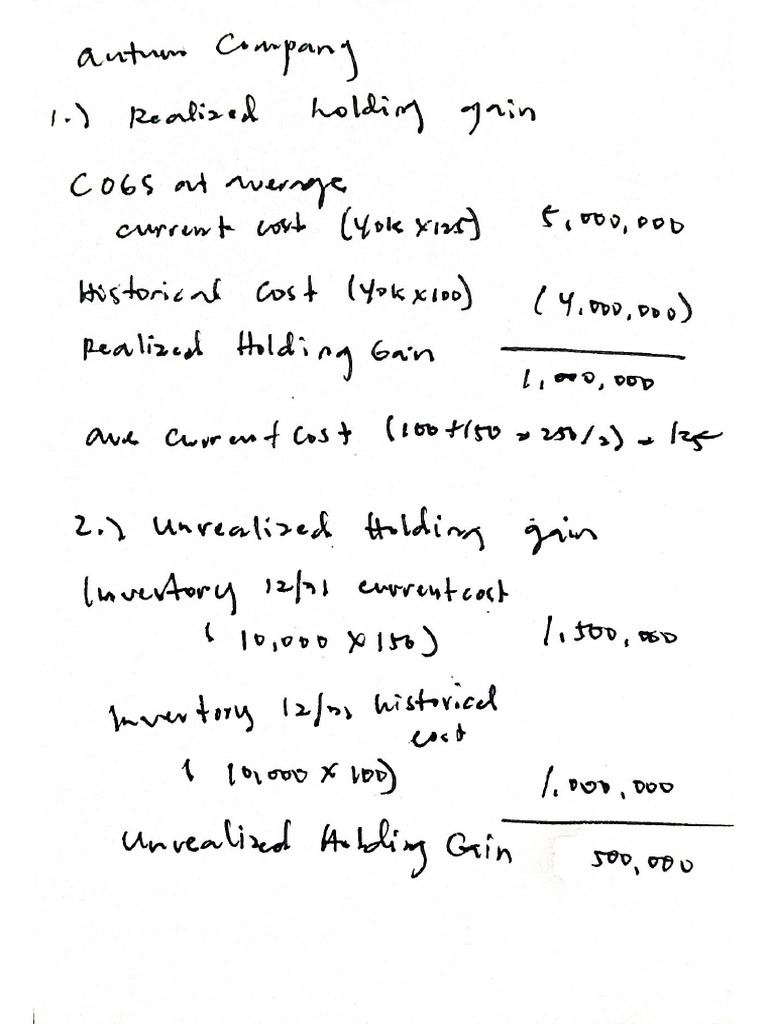 Autumn Company
1.) Realized holding gain
COGS at average
current cost (40k x 125) 5,000,000
Historical Cost (40k x 100) (4,000,000)
Realized Holding Gain
1,000,000
ave current cost (100 + 150 = 250/2) = 125
2.) Unrealized Holding gain
Inventory 12/31 current cost
(10,000 x 150) 1,500,000
Inventory 12/31 historical
cost
(10,000 x 100) 1,000,000
Unrealized Holding Gain 500,000